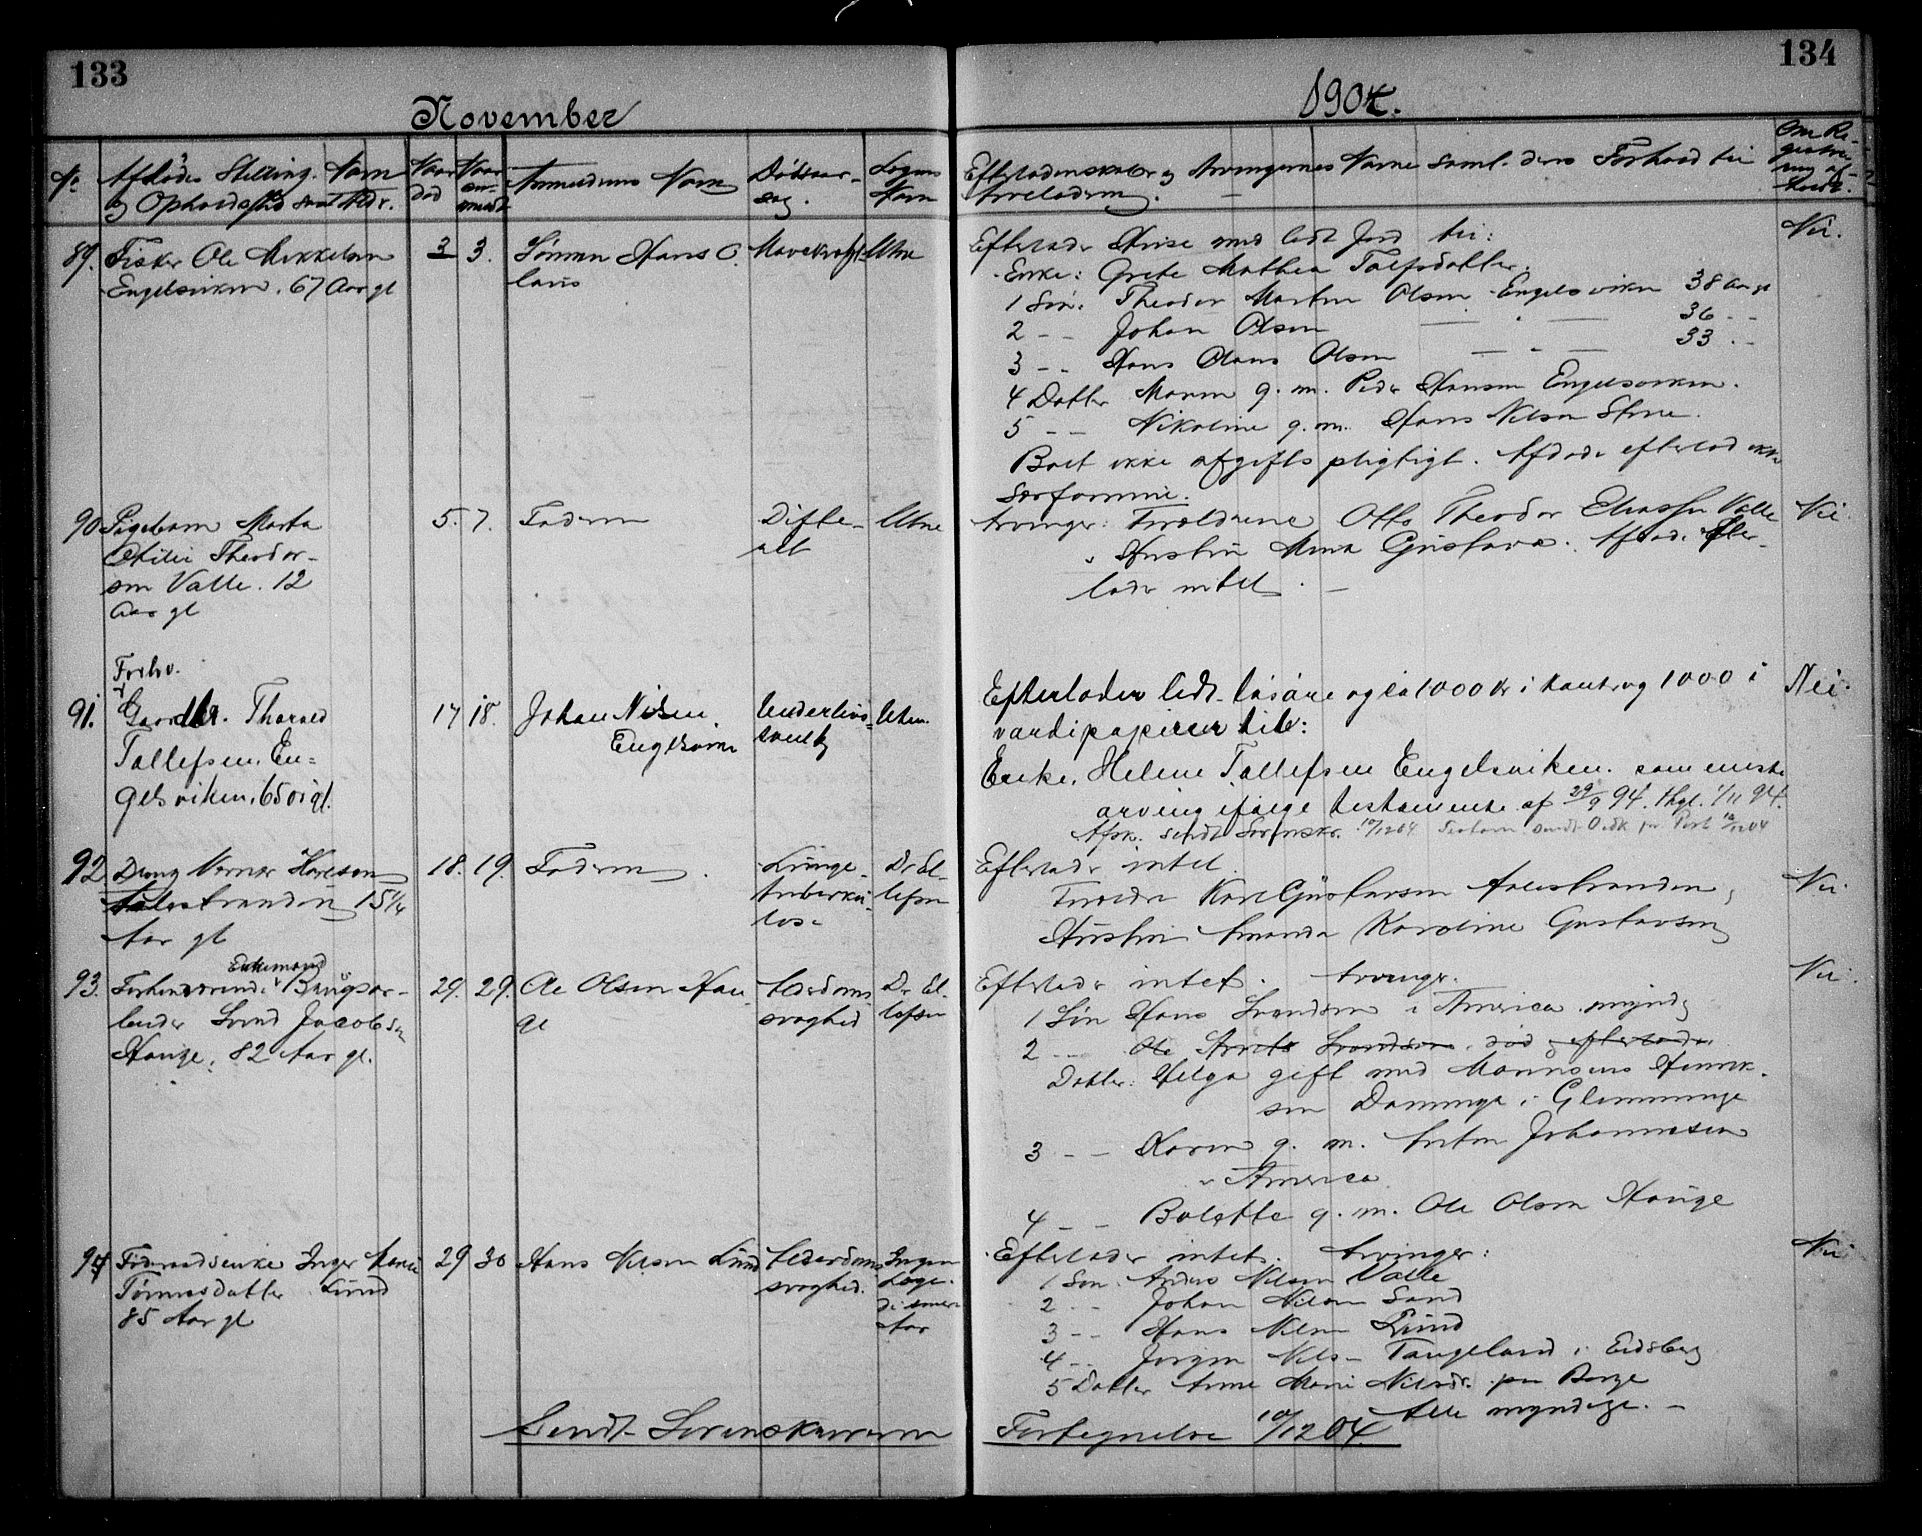 133
134
November
1904.
No
Afdødes Stilling, Navn
og Opholdssted samt Aldr.
Naar
død
Naar
an-
meldt
Anmelderens Navn
Dødsaar-
sag.
Lægens
Navn
Efterladenskaber og Arvingernes Navne samt deres Forhold til
Arveladeren.
Om Re-
gistre-
ring af-
holdt.
89. Fisker Ole Mikkelsen
Engelsviken. 67 Aar gl
3 3.
Sønnen Hans O.
laus
Mavekræft
Uten
Efterlader Huse med lidt Jord til:
Enke: Grete Mathea Tolfsdatter.
1 Søn: Theodor Martin Olsen Engelsviken 38 aar gl
2 - - Johan Olsen — " — 36 - -
3 - - Hans Olaus Olsen — " — 33 - -
4 Datter Maren g. m. Peder Hansen Engelsviken.
5 - - Nikoline g. m. Hans Nilsen Stene.
Boet ikke afgiftspligtigt. Afdøde efterlod ikke
Særformue.
Nei.
90 Pigebarn Marta
Otilie Theodor-
sen Valle. 12
Aar gl
5. 7.
Faderen
Difte-
rit
Uten
Arvinger: Forældrene Otto Theodor Eliassen Valle
og Hustru Anna Gustava. Afdøde Efter-
lader intet. —
Nei
Forhv.
91. Gaardbr. Thorvald
Tollefsen. En-
gelsviken. 65 år gl.
17 18.
Johan Nilsen.
Engelsviken
Underlivs-
svulst
Uten.
Efterlader lidt løsøre og ca 1000 kr i kontr. og 1000 i
værdipapirer til:
Enke. Helene Tollefsen Engelsviken. som eneste
arving ifølge testamente af 29/9 94. thgl. 1/11 94.
Afsk. sendt Sorenskr. 10/12 04
Nei.
92. Dreng Verner Karlsen
Aalestranden 15 1/4
Aar gl
18. 19.
Faderen.
Lunge-
tuberku-
lose
Dr El-
lefsen
Efterlader intet.
Forældre Karl Gustavsen Aalestranden og
Hustru Amanda Karoline Gustavsen
Nei.
93. Forhenværende Enkemand Brugsør-
lænder Svend Jacobsen
Hauge. 82 Aar gl.
29. 29.
Ole Olsen Hau-
ge
Alderdoms-
svaghed
Dr El-
lefsen
Efterlader intet. Arvinger.
1 Søn Hans Svendsen i Amerika. myndig
2 - - Ole Svendsen. død og efterlader
Datter: Helga gift med Henrik-
sen Damminge i Glemminge
3 - - Karen g. m. Anton Johannesen
i Amerika
4 - - Bolette g. m. Ole Olsen Hauge
Nei.
94 Føderaadsenke Inger Marie
Tønnesdatter Lund
85 Aar gl
29 30
Hans Nilsen Lund
Alderdoms-
svaghed.
Ingen
Læge-
de senere
Aar
Efterlader intet. Arvinger:
1 Søn. Anders Nilsen Valle
2 - - Johan Nilsen Sand
3 - - Hans Nilsen Lund
4 - - Jørgen Nils- Tangeland i Eidsberg
5 Datter Anne Marie Nilsdr.
Alle myndige. —
Nei
Sendt Sorenskriveren Fortegnelse 10/12 04.